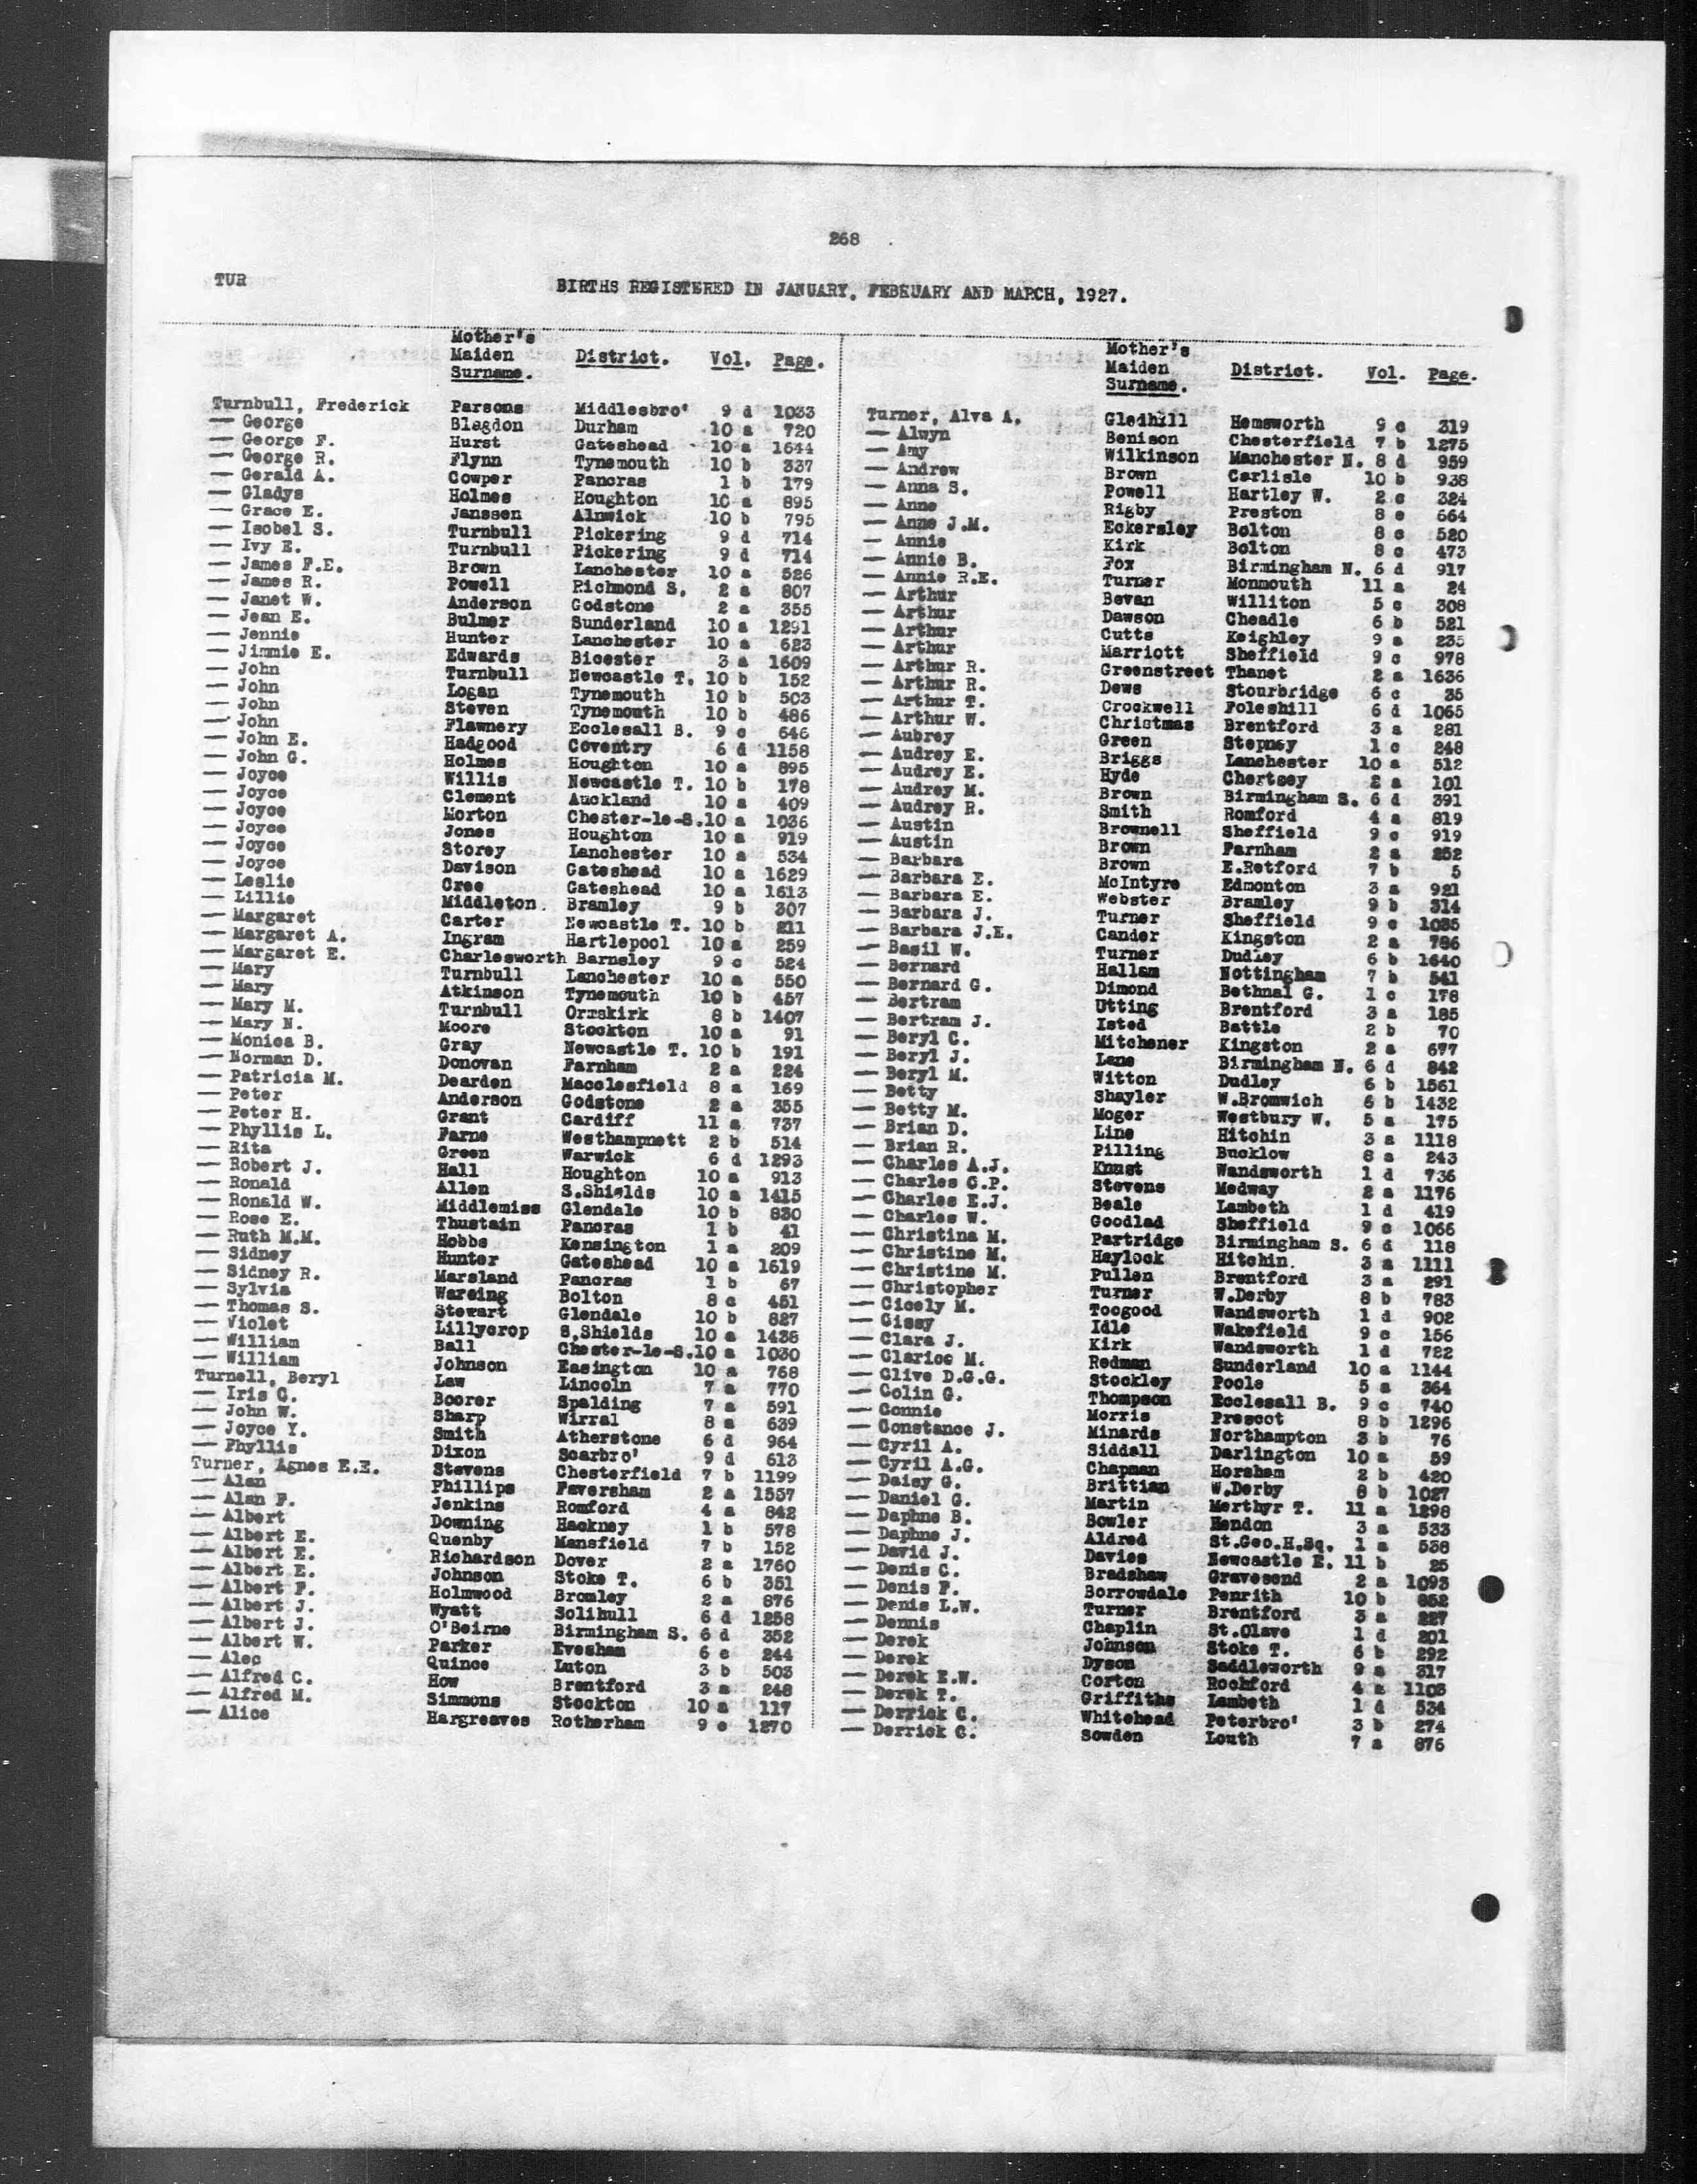 268
TUR
BIRTHS REGISTERED IN JANUARY, FEBRUARY AND MARCH, 1927.
Mother's
Maiden District. Vol. Page.
Surname.
Turnbull, Frederick Parsons Middlesbro' 9 d 1033
— George Blagdon Durham 10 a 720
— George F. Hurst Gateshead 10 a 1644
— George R. Flynn Tynemouth 10 b 337
— Gerald A. Cowper Pancras 1 b 179
— Gladys Holmes Houghton 10 a 895
— Grace E. Janssen Alnwick 10 b 795
— Isobel S. Turnbull Pickering 9 d 714
— Ivy E. Turnbull Pickering 9 d 714
— James F.E. Brown Lanchester 10 a 526
— James R. Powell Richmond S. 2 a 807
— Janet W. Anderson Godstone 2 a 355
— Jean E. Bulmer Sunderland 10 a 1291
— Jennie Hunter Lanchester 10 a 623
— Jimmie E. Edwards Bicester 3 a 1609
— John Turnbull Newcastle T. 10 b 152
— John Logan Tynemouth 10 b 503
— John Steven Tynemouth 10 b 486
— John Flawnery Ecclesall B. 9 c 646
— John E. Hadgood Coventry 6 d 1158
— John G. Holmes Houghton 10 a 895
— Joyce Willis Newcastle T. 10 b 178
— Joyce Clement Auckland 10 a 409
— Joyce Morton Chester-le-S. 10 a 1036
— Joyce Jones Houghton 10 a 919
— Joyce Storey Lanchester 10 a 534
— Joyce Davison Gateshead 10 a 1629
— Leslie Cree Gateshead 10 a 1613
— Lillie Middleton Bramley 9 b 307
— Margaret Carter Newcastle T. 10 b 211
— Margaret A. Ingram Hartlepool 10 a 259
— Margaret E. Charlesworth Barnsley 9 c 524
— Mary Turnbull Lanchester 10 a 550
— Mary Atkinson Tynemouth 10 b 457
— Mary M. Turnbull Ormskirk 8 b 1407
— Mary N. Moore Stockton 10 a 91
— Monica B. Gray Newcastle T. 10 b 191
— Norman D. Donovan Farnham 2 a 224
— Patricia M. Dearden Macclesfield 8 a 169
— Peter Anderson Godstone 2 a 355
— Peter H. Grant Cardiff 11 a 737
— Phyllis L. Farne Westhampnett 2 b 514
— Rita Green Warwick 6 d 1293
— Robert J. Hall Houghton 10 a 913
— Ronald Allen S.Shields 10 a 1415
— Ronald W. Middlemiss Glendale 10 b 830
— Rose E. Thustain Pancras 1 b 41
— Ruth M.M. Hobbs Kensington 1 a 209
— Sidney Hunter Gateshead 10 a 1619
— Sidney R. Marsland Pancras 1 b 67
— Sylvia Wareing Bolton 8 c 451
— Thomas S. Stewart Glendale 10 b 827
— Violet Lillycrop S.Shields 10 a 1436
— William Ball Chester-le-S. 10 a 1030
— William Johnson Easington 10 a 768
Turnell, Beryl Law Lincoln 7 a 770
— Iris C. Boorer Spalding 7 a 591
— John W. Sharp Wirral 8 a 639
— Joyce Y. Smith Atherstone 6 d 964
— Phyllis Dixon Scarbro' 9 d 613
Turner, Agnes E.E. Stevens Chesterfield 7 b 1199
— Alan Phillips Faversham 2 a 1557
— Alan F. Jenkins Romford 4 a 842
— Albert Downing Hackney 1 b 578
— Albert E. Quenby Mansfield 7 b 152
— Albert E. Richardson Dover 2 a 1760
— Albert E. Johnson Stoke T. 6 b 351
— Albert F. Holmwood Bromley 2 a 876
— Albert J. Wyatt Solihull 6 d 1258
— Albert J. O'Beirne Birmingham S. 6 d 352
— Albert W. Parker Evesham 6 c 244
— Alec Quince Luton 3 b 503
— Alfred C. How Brentford 3 a 248
— Alfred M. Simmons Stockton 10 a 117
— Alice Hargreaves Rotherham 9 c 1270
Mother's
Maiden District. Vol. Page.
Surname.
Turner, Alva A. Gledhill Hemsworth 9 c 319
— Alwyn Benison Chesterfield 7 b 1275
— Amy Wilkinson Manchester N. 8 d 959
— Andrew Brown Carlisle 10 b 938
— Anna S. Powell Hartley W. 2 c 324
— Anne Rigby Preston 8 e 664
— Anne J.M. Eckersley Bolton 8 c 520
— Annie Kirk Bolton 8 c 473
— Annie B. Fox Birmingham N. 6 d 917
— Annie R.E. Turner Monmouth 11 a 24
— Arthur Bevan Williton 5 c 308
— Arthur Dawson Cheadle 6 b 521
— Arthur Cutts Keighley 9 a 235
— Arthur Marriott Sheffield 9 c 978
— Arthur R. Greenstreet Thanet 2 a 1636
— Arthur R. Dews Stourbridge 6 c 35
— Arthur T. Crockwell Foleshill 6 d 1065
— Arthur W. Christmas Brentford 3 a 281
— Aubrey Green Stepney 1 c 248
— Audrey E. Briggs Lanchester 10 a 512
— Audrey E. Hyde Chertsey 2 a 101
— Audrey M. Brown Birmingham S. 6 d 391
— Audrey R. Smith Romford 4 a 819
— Austin Brownell Sheffield 9 c 919
— Austin Brown Farnham 2 a 252
— Barbara Brown E.Retford 7 b 5
— Barbara E. McIntyre Edmonton 3 a 921
— Barbara E. Webster Bramley 9 b 314
— Barbara J. Turner Sheffield 9 c 1035
— Barbara J.E. Cander Kingston 2 a 786
— Basil W. Turner Dudley 6 b 1640
— Bernard Hallam Nottingham 7 b 541
— Bernard G. Dimond Bethnal G. 1 c 178
— Bertram Utting Brentford 3 a 185
— Bertram J. Isted Battle 2 b 70
— Beryl C. Mitchener Kingston 2 a 677
— Beryl J. Lane Birmingham N. 6 d 842
— Beryl M. Witton Dudley 6 b 1561
— Betty Shayler W.Bromwich 6 b 1432
— Betty M. Moger Westbury W. 5 a 175
— Brian D. Line Hitchin 3 a 1118
— Brian R. Pilling Bucklow 8 a 243
— Charles A.J. Knust Wandsworth 1 d 736
— Charles C.P. Stevens Medway 2 a 1176
— Charles E.J. Beale Lambeth 1 d 419
— Charles W. Goodlad Sheffield 9 c 1066
— Christina M. Partridge Birmingham S. 6 d 118
— Christine M. Haylock Hitchin. 3 a 1111
— Christine M. Pullen Brentford 3 a 291
— Christopher Turner W.Derby 8 b 783
— Cicely M. Toogood Wandsworth 1 d 902
— Cissy Idle Wakefield 9 c 156
— Clara J. Kirk Wandsworth 1 d 722
— Clarice M. Redman Sunderland 10 a 1144
— Clive D.G.G. Stockley Poole 5 a 364
— Colin G. Thompson Ecclesall B. 9 c 740
— Connie Morris Prescot 8 b 1296
— Constance J. Minards Northampton 3 b 76
— Cyril A. Siddall Darlington 10 a 59
— Cyril A.G. Chapman Horsham 2 b 420
— Daisy G. Brittian W.Derby 8 b 1027
— Daniel G. Martin Merthyr T. 11 a 1298
— Daphne B. Bowler Hendon 3 a 533
— Daphne J. Aldred St.Geo.H.Sq. 1 a 538
— David J. Davies Newcastle E. 11 b 25
— Denis C. Bradshaw Gravesend 2 a 1093
— Denis F. Borrowdale Penrith 10 b 852
— Denis L.W. Turner Brentford 3 a 227
— Dennis Chaplin St.Olave 1 d 201
— Derek Johnson Stoke T. 6 b 292
— Derek Dyson Saddleworth 9 a 317
— Derek E.W. Corton Rochford 4 a 1108
— Derek T. Griffiths Lambeth 1 d 534
— Derrick C. Whitehead Peterbro' 3 b 274
— Derrick G. Sowden Louth 7 a 876